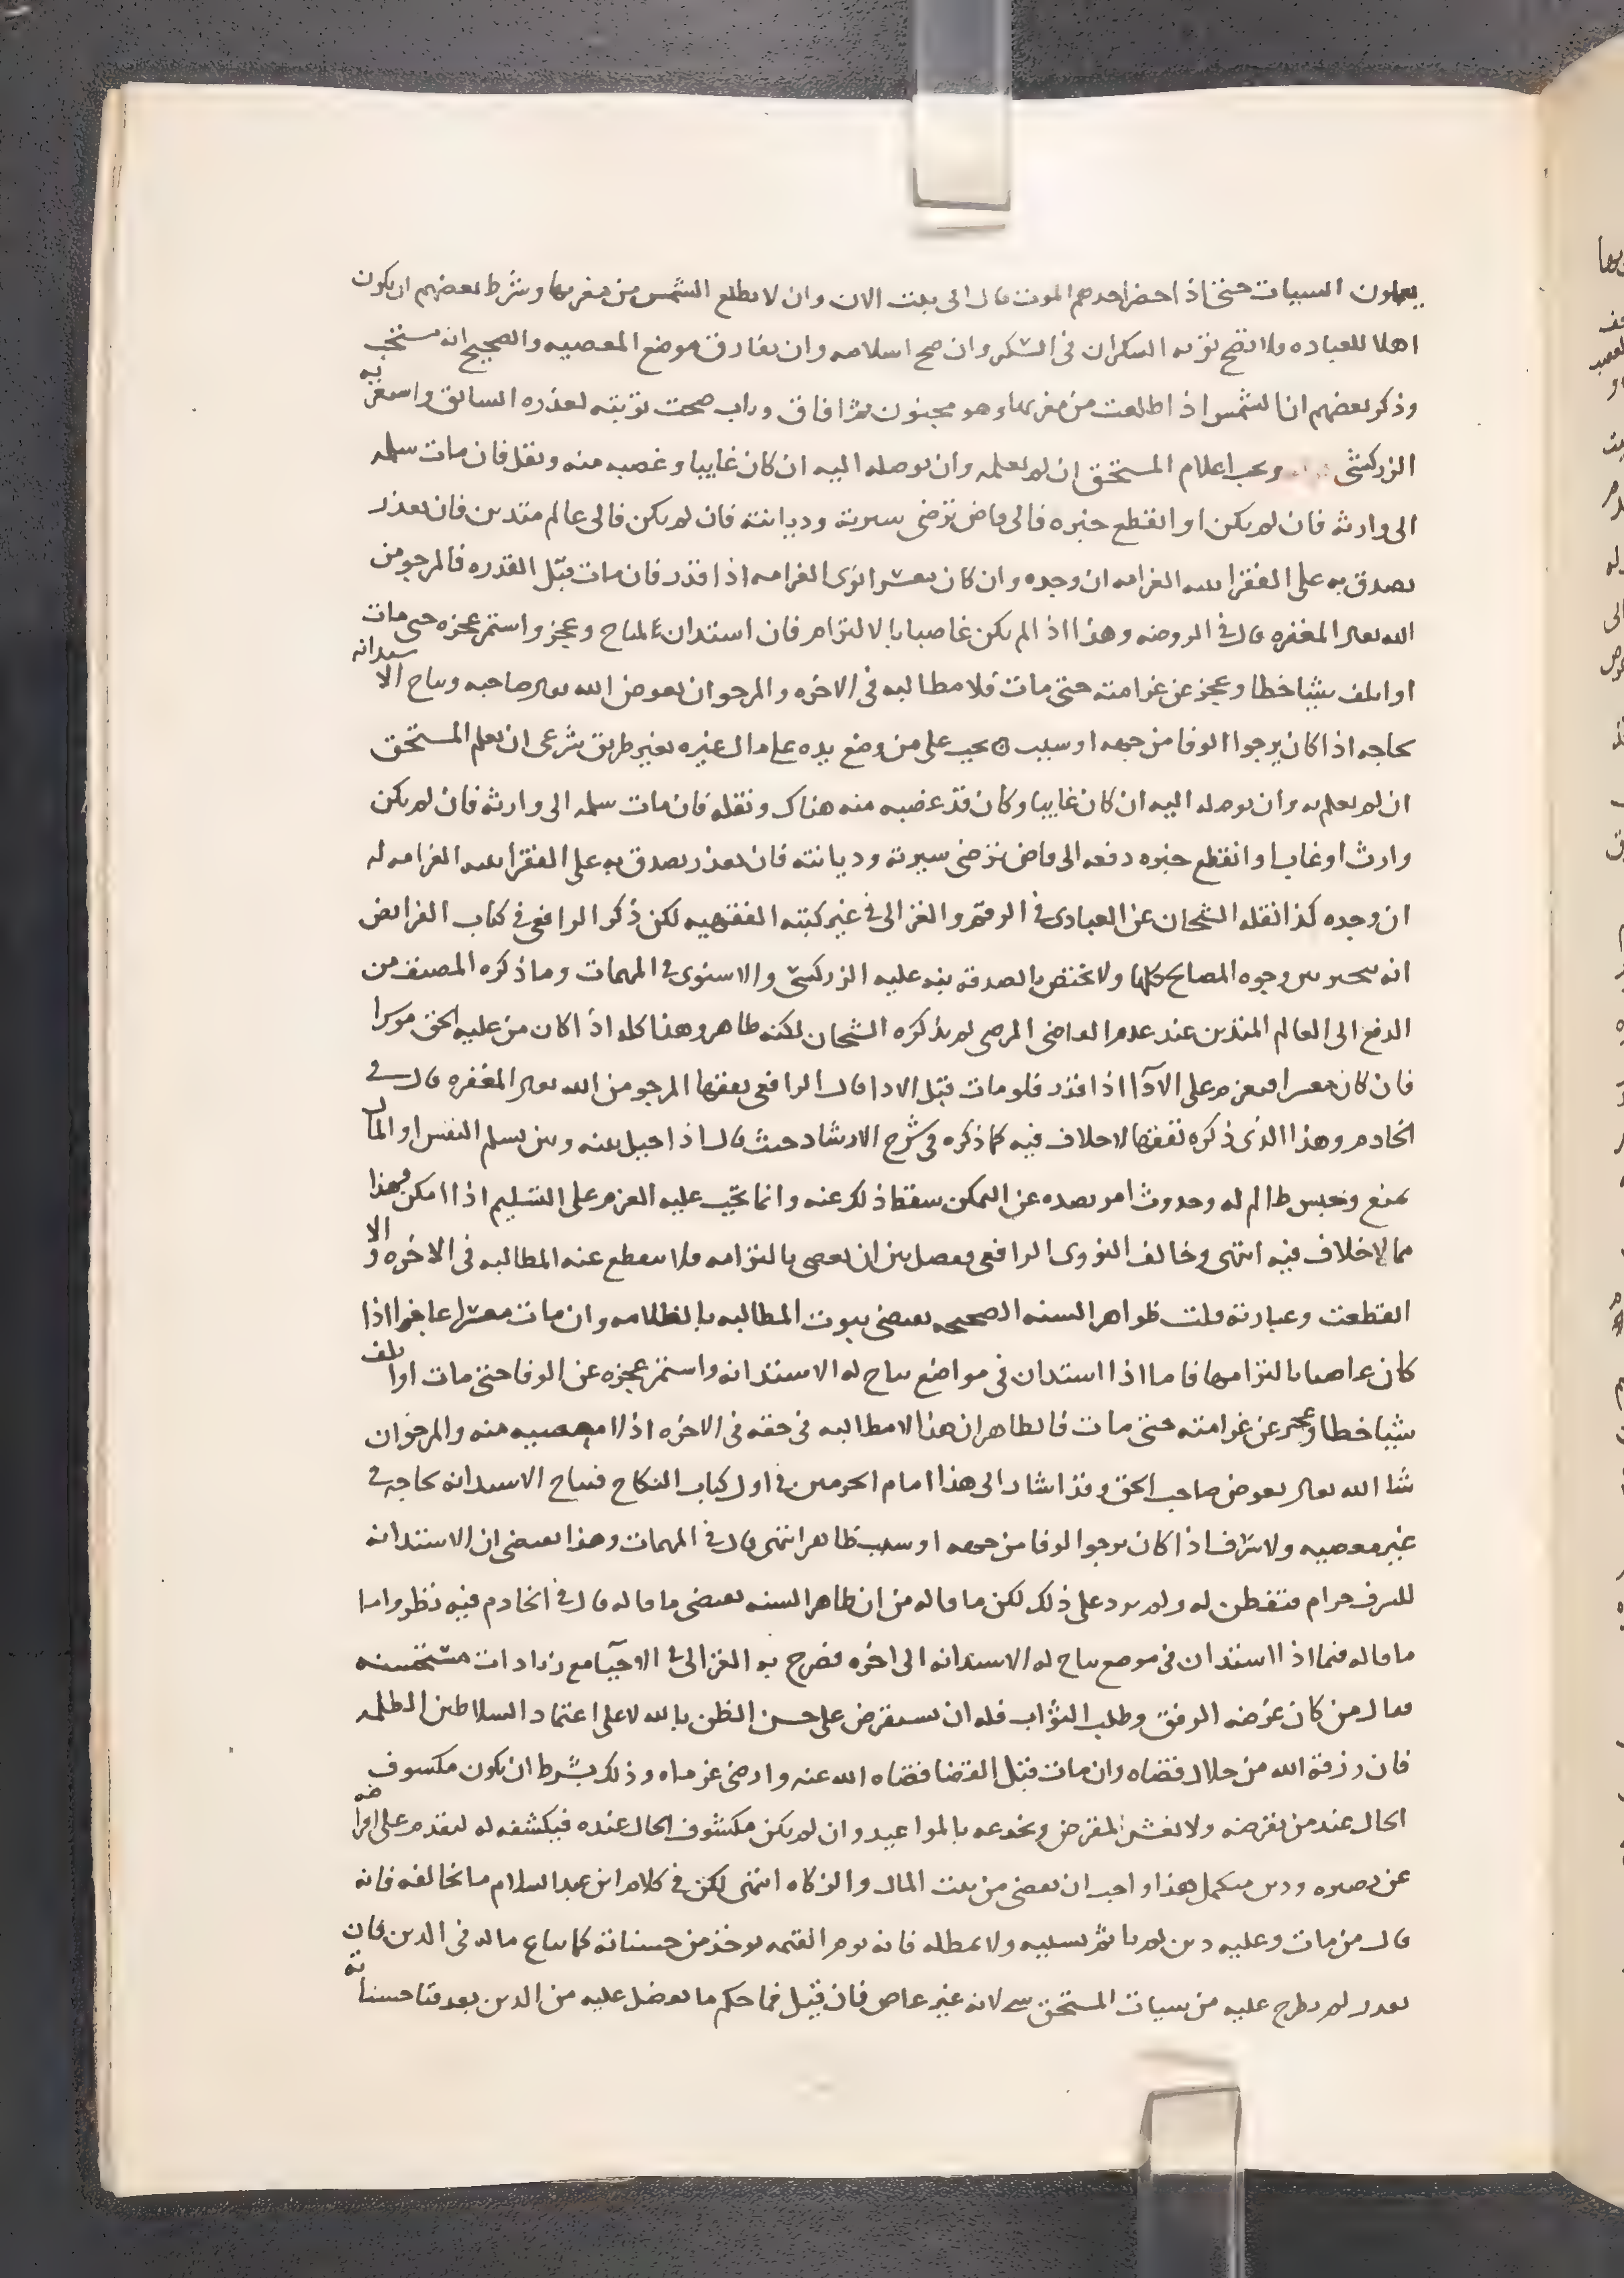 يعملون السيات حتى اذا حضر احدهم الموت قال انى تبت الان وان لا تطلع الشمس من مغربها وشرط بعضهم ان يكون
اهلا للعباده فلا تصح توبه السكران فى السكر وان صح اسلامه وان يفارق موضع المعصيه والصحيح انه مستحب
وذكر بعضهم ان الشمس اذا طلعت من مغربها وهو مجنون ثم افاق وتاب صحت توبته لعذره السابق واستغربه
الزركشى ويجب اعلام المستحق ان لم يعلمه وان يوصله اليه ان كان غايبا وغصبه منه ونقل فان مات سلمه
الى وارثه فان لم يكن او انقطع خبره فالى قاض ترضى سيرته وديانته فان لم يكن فالى عالم متدين فان تعذر
تصدق به على الفقرا بنيه الغرامه ان وجده وان كان معسرا نوى الغرامه اذا قدر فان مات قبل القدره فالمرجو من
الله تعالى المغفره قال فى الروضه وهذا اذا لم يكن عاصيا بالالتزام فان استدان لمباح وعجز واستمر عجزه حتى مات
او اتلف شيا خطا وعجز عن غرامته حتى مات فلا مطالبه فى الاخره والمرجو ان يعوض الله تعالى صاحبه وتباح الاستدانه
لحاجه اذا كان يرجوا الوفا من جهه او سبب ه يجب على من وضع يده على مال غيره بغير طريق شرعى ان يعلم المستحق
ان لم يعلم به وان يوصله اليه ان كان غايبا وكان قد غصبه منه هناك ونقله فان مات سلمه الى وارثه فان لم يكن
وارث او غاب وانقطع خبره دفعه الى قاض ترضى سيرته وديانته فان تعذر تصدق به على الفقرا بنيه الغرامه له
ان وجده كذا نقله الشيخان عن العبادى فى الرقم والغزالى فى غير كتبه الفقهيه لكن ذكر الرافعى فى كتاب الفرايض
انه يتخير بين وجوه المصالح كلها ولا يختص بالصدقه نبه عليه الزركشى والاسنوى فى المهمات وما ذكره المصنف من
الدفع الى العالم المتدين عند عدم القاضى المرضى لم يذكره الشيخان لكنه ظاهر وهذا كله اذا كان من عليه الحق موسرا
فان كان معسرا فيعزم على الادآ اذا قدر فلو مات قبل الادا قال الرافعى تفقها المرجو من الله تعالى المغفره قال فى
الخادم وهذا الذى ذكره تفقها لا خلاف فيه كما ذكره فى شرح الارشاد حيث قال اذا حيل بينه وبين تسلم النفس او المال
بمنع وحبس ظالم له وحدوث امر يصده عن التمكن سقط ذلك عنه وانما يجب عليه العزم على التسليم اذا امكن وهذا
مما لا خلاف فيه انتهى وخالف النووى الرافعى ففصل بين ان يعصى بالتزامه فلا تنقطع عنه المطالبه فى الاخره والا
انقطعت وعبارته قلت ظواهر السنه الصحيحه تقتضى ثبوت المطالبه بالظلامه وان مات معسرا عاجزا اذا
كان عاصيا بالتزامها فاما اذا استدان فى مواضع يباح له الاستدانه واستمر عجزه عن الوفا حتى مات او اتلف
شيا خطا وعجز عن غرامته حتى مات فالظاهر ان هذا لا مطالبه فى حقه فى الاخره اذ لا معصيه منه والمرجو ان
شا الله تعالى يعوض صاحب الحق وقد اشار الى هذا امام الحرمين فى اول كتاب النكاح فتباح الاستدانه لحاجه فى
غير معصيه ولا سرف اذا كان يرجو الوفا من جهه او سبب ظاهر انتهى قال فى المهمات وهذا يقتضى ان الاستدانه
للسرف حرام فتفطن له ولم يرد على ذلك لكن ما قاله من ان ظاهر السنه يقتضى ما قاله قال فى الخادم فيه نظر واما
ما قاله فيما اذا استدان فى موضع يباح له الاستدانه الى اخره فصرح به الغزالى فى الاحيآ مع زيادات مستحسنه
فقال من كان غرضه الرفق وطلب الثواب فله ان يستقرض على حسن الظن بالله لا على اعتماد السلاطين الظلمه
فان رزقه الله من حلال قضاه وان مات قبل القضا قضاه الله عنه وارضى غرماه وذلك بشرط ان يكون مكشوف
الحال عند من يقرضه ولا يغش المقرض ويخدعه بالمواعيد وان لم يكن مكشوف الحال عنده فيكشفه له ليقدم على اقراضه
عن بصيره ودين مثل هذا واجب ان يقضى من بيت المال والزكاه انتهى لكن فى كلام ابن عبد السلام ما يخالفه فانه
قال من مات وعليه دين لم ياثم بسببه ولا بمطله فانه يوم القيمه يوخذ من حسناته كما يباع ماله فى الدين فان
تعذر لم يطرح عليه من سيات المستحق شى لانه غير عاص فان قيل فما حكم ما يفضل عليه من الدين بعد فنا حسناته